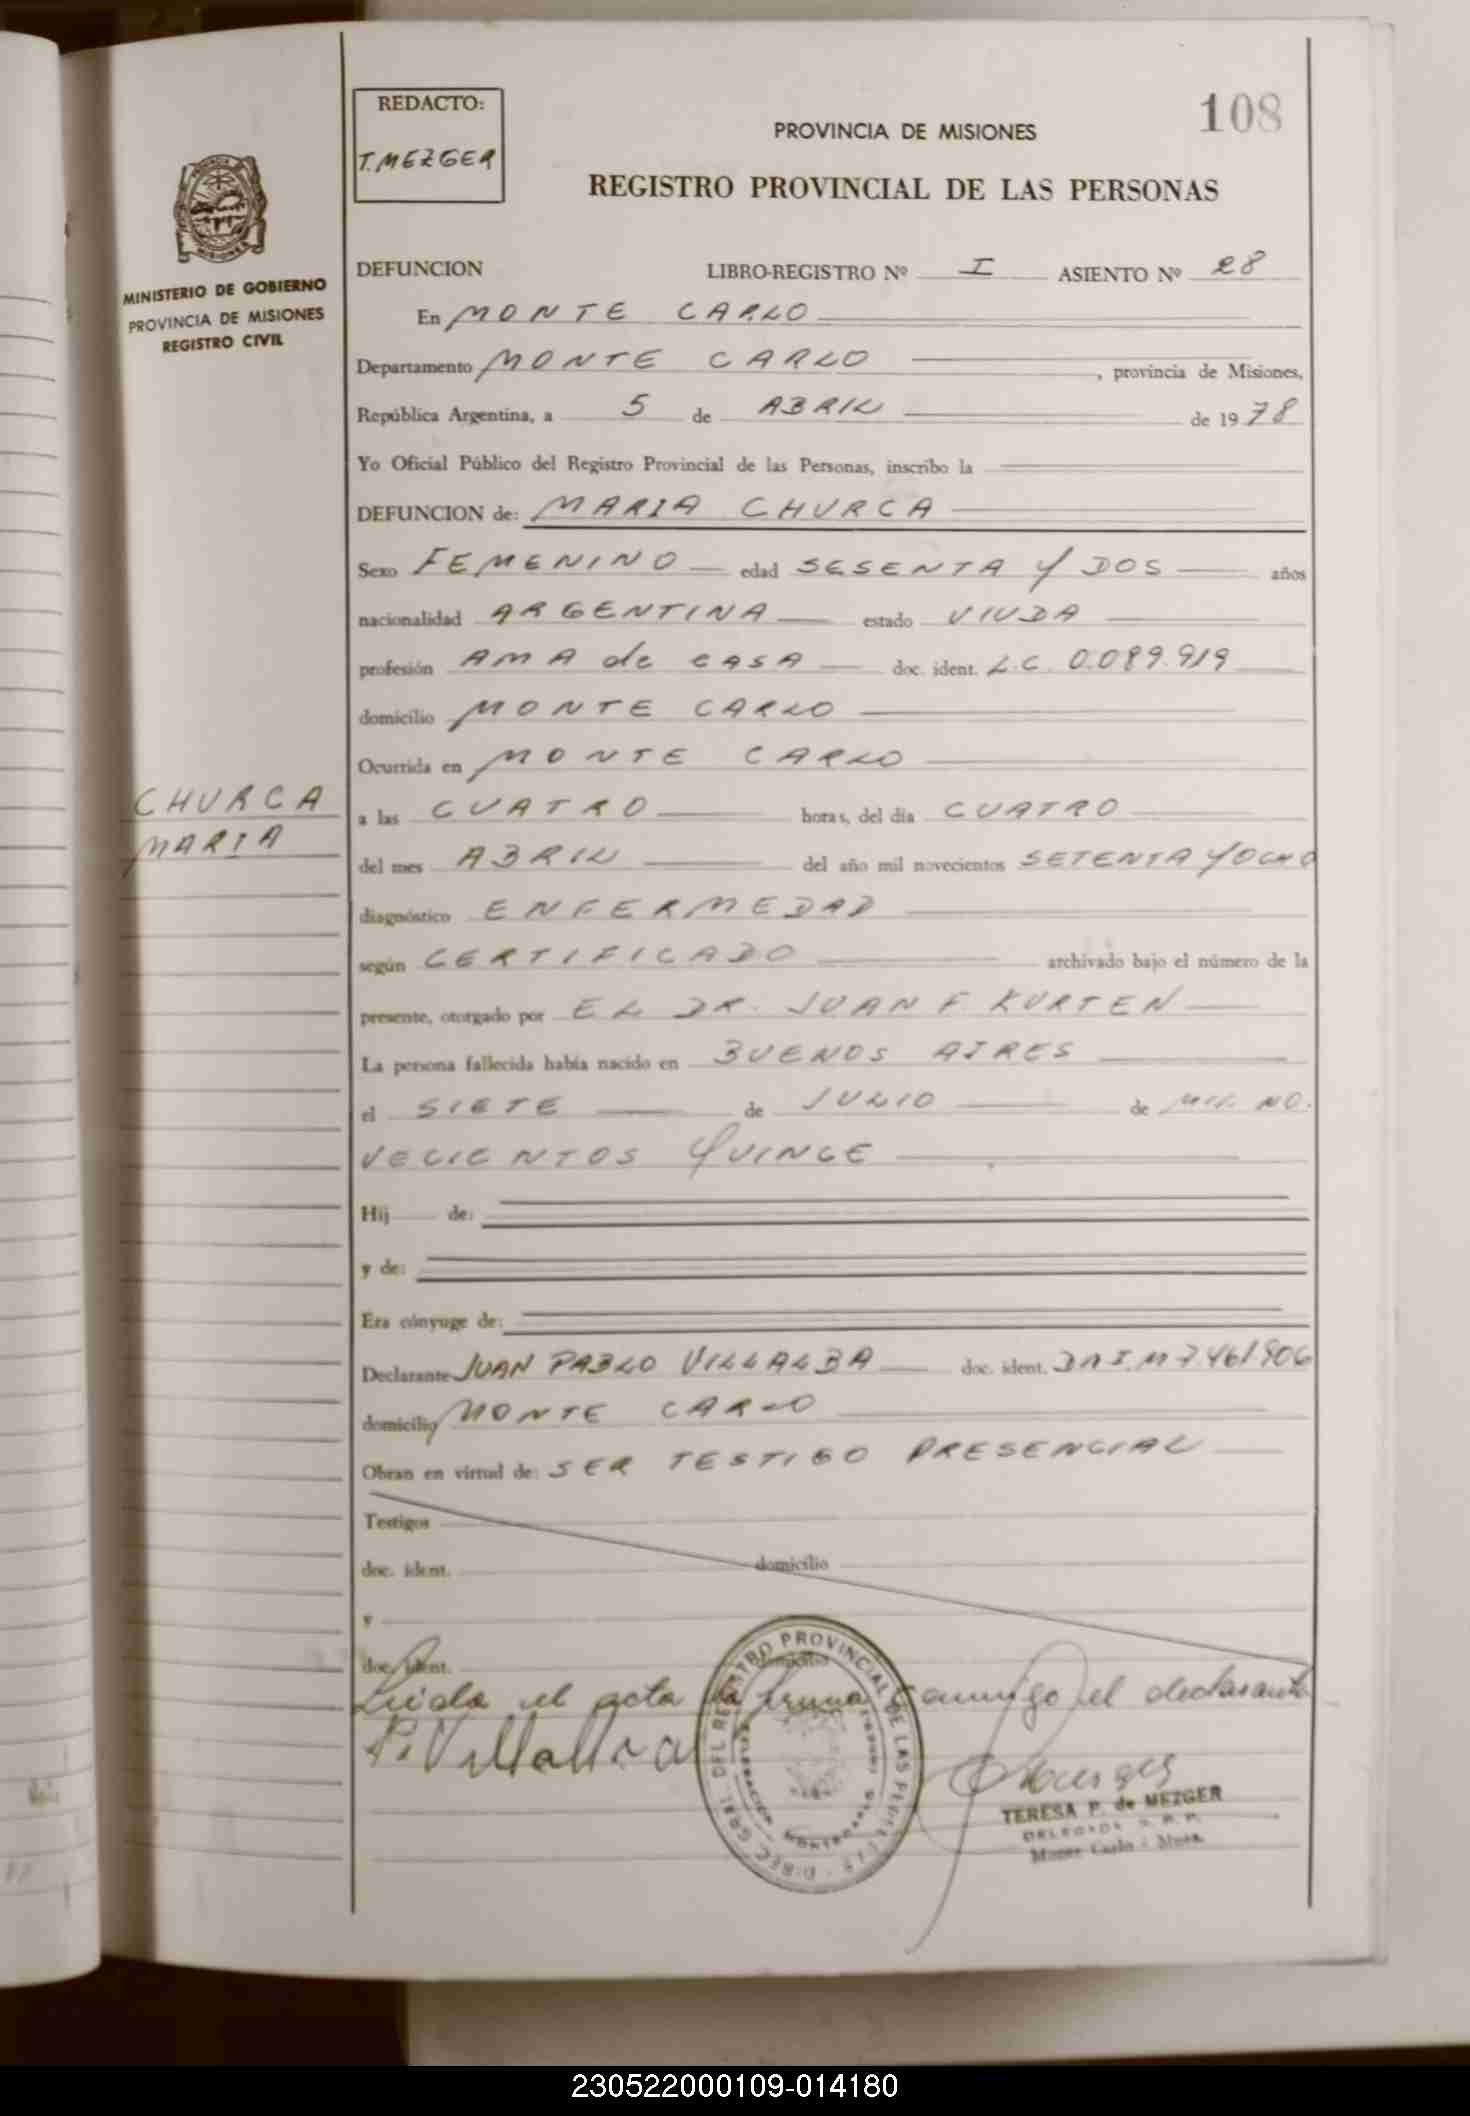 108
REDACTO:
T. MEZGER
PROVINCIA DE MISIONES
REGISTRO PROVINCIAL DE LAS PERSONAS
MINISTERIO DE GOBIERNO
PROVINCIA DE MISIONES
REGISTRO CIVIL
DEFUNCION LIBRO-REGISTRO Nº I ASIENTO Nº 28
En MONTE CARLO
Departamento MONTE CARLO, provincia de Misiones,
República Argentina, a 5 de ABRIL de 1978
Yo Oficial Público del Registro Provincial de las Personas, inscribo la
DEFUNCION de: MARIA CHURCA
Sexo FEMENINO edad SESENTA Y DOS años
nacionalidad ARGENTINA estado VIUDA
profesión AMA de CASA doc. ident. L.C. 0.089.919
domicilio MONTE CARLO
Ocurrida en MONTE CARLO
CHURCA
MARIA
a las CUATRO horas, del día CUATRO
del mes ABRIL del año mil novecientos SETENTA Y OCHO
diagnóstico ENFERMEDAD
según CERTIFICADO archivado bajo el número de la
presente, otorgado por EL DR. JUAN F KURTEN
La persona fallecida había nacido en BUENOS AIRES
el SIETE de JULIO de MIL NO.
VECIENTOS QUINCE
Hij de:
y de:
Era cónyuge de:
Declarante JUAN PABLO VILLALBA doc. ident. D.N.I. M 7.461.906
domicilio MONTE CARLO
Obran en virtud de: SER TESTIGO PRESENCIAL
Testigos
doc. ident. domicilio
y
doc. ident. domicilio
Leida el acta la firma conmigo el declarante
P. Villalba
DIREC. GRAL. DEL REGISTRO PROVINCIAL DE LAS PERSONAS
DELEGACION MONTECARLO
TERESA P. de MEZGER
DELEGADA R. P. P.
Monte Carlo - Mnes.
230522000109-014180